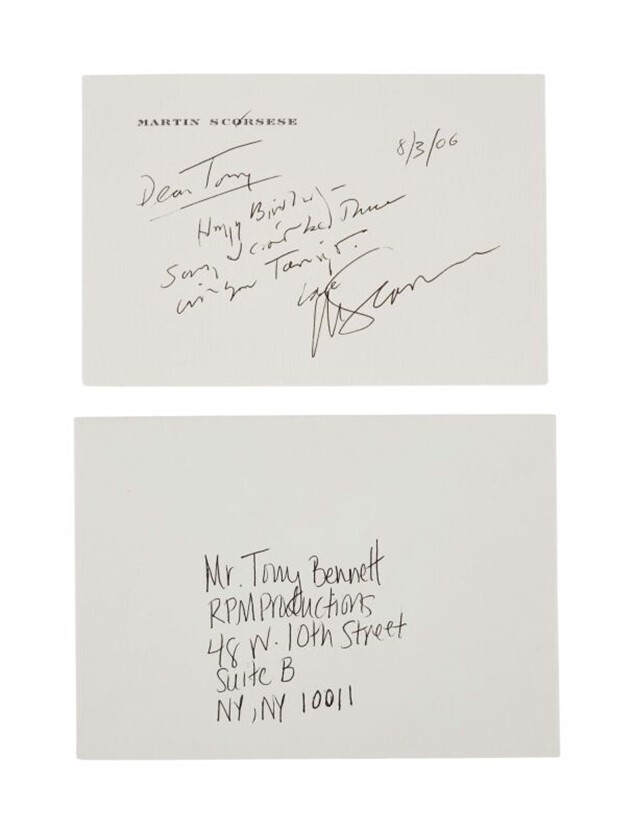 MARTIN SCORSESE
8/3/06
Dear Tony
Happy Birthday -
Sorry I can't be there
with you Tonight.
Love
MScorsese
Mr. Tony Bennett
RPM Productions
48 W. 10th Street
Suite B
NY, NY 10011